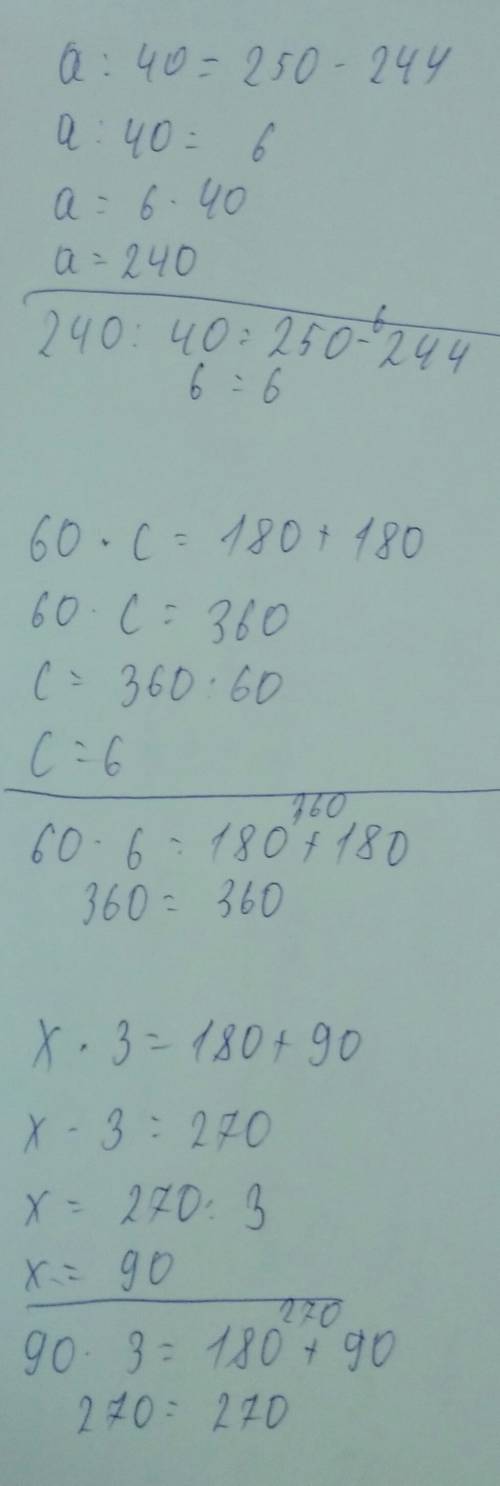 a : 40 = 250 - 244
a : 40 = 6
a = 6 · 40
a = 240
6
240 : 40 = 250 - 244
6 = 6
60 · c = 180 + 180
60 · c = 360
c = 360 : 60
c = 6
360
60 · 6 = 180 + 180
360 = 360
x · 3 = 180 + 90
x - 3 = 270
x = 270 : 3
x = 90
270
90 · 3 = 180 + 90
270 = 270